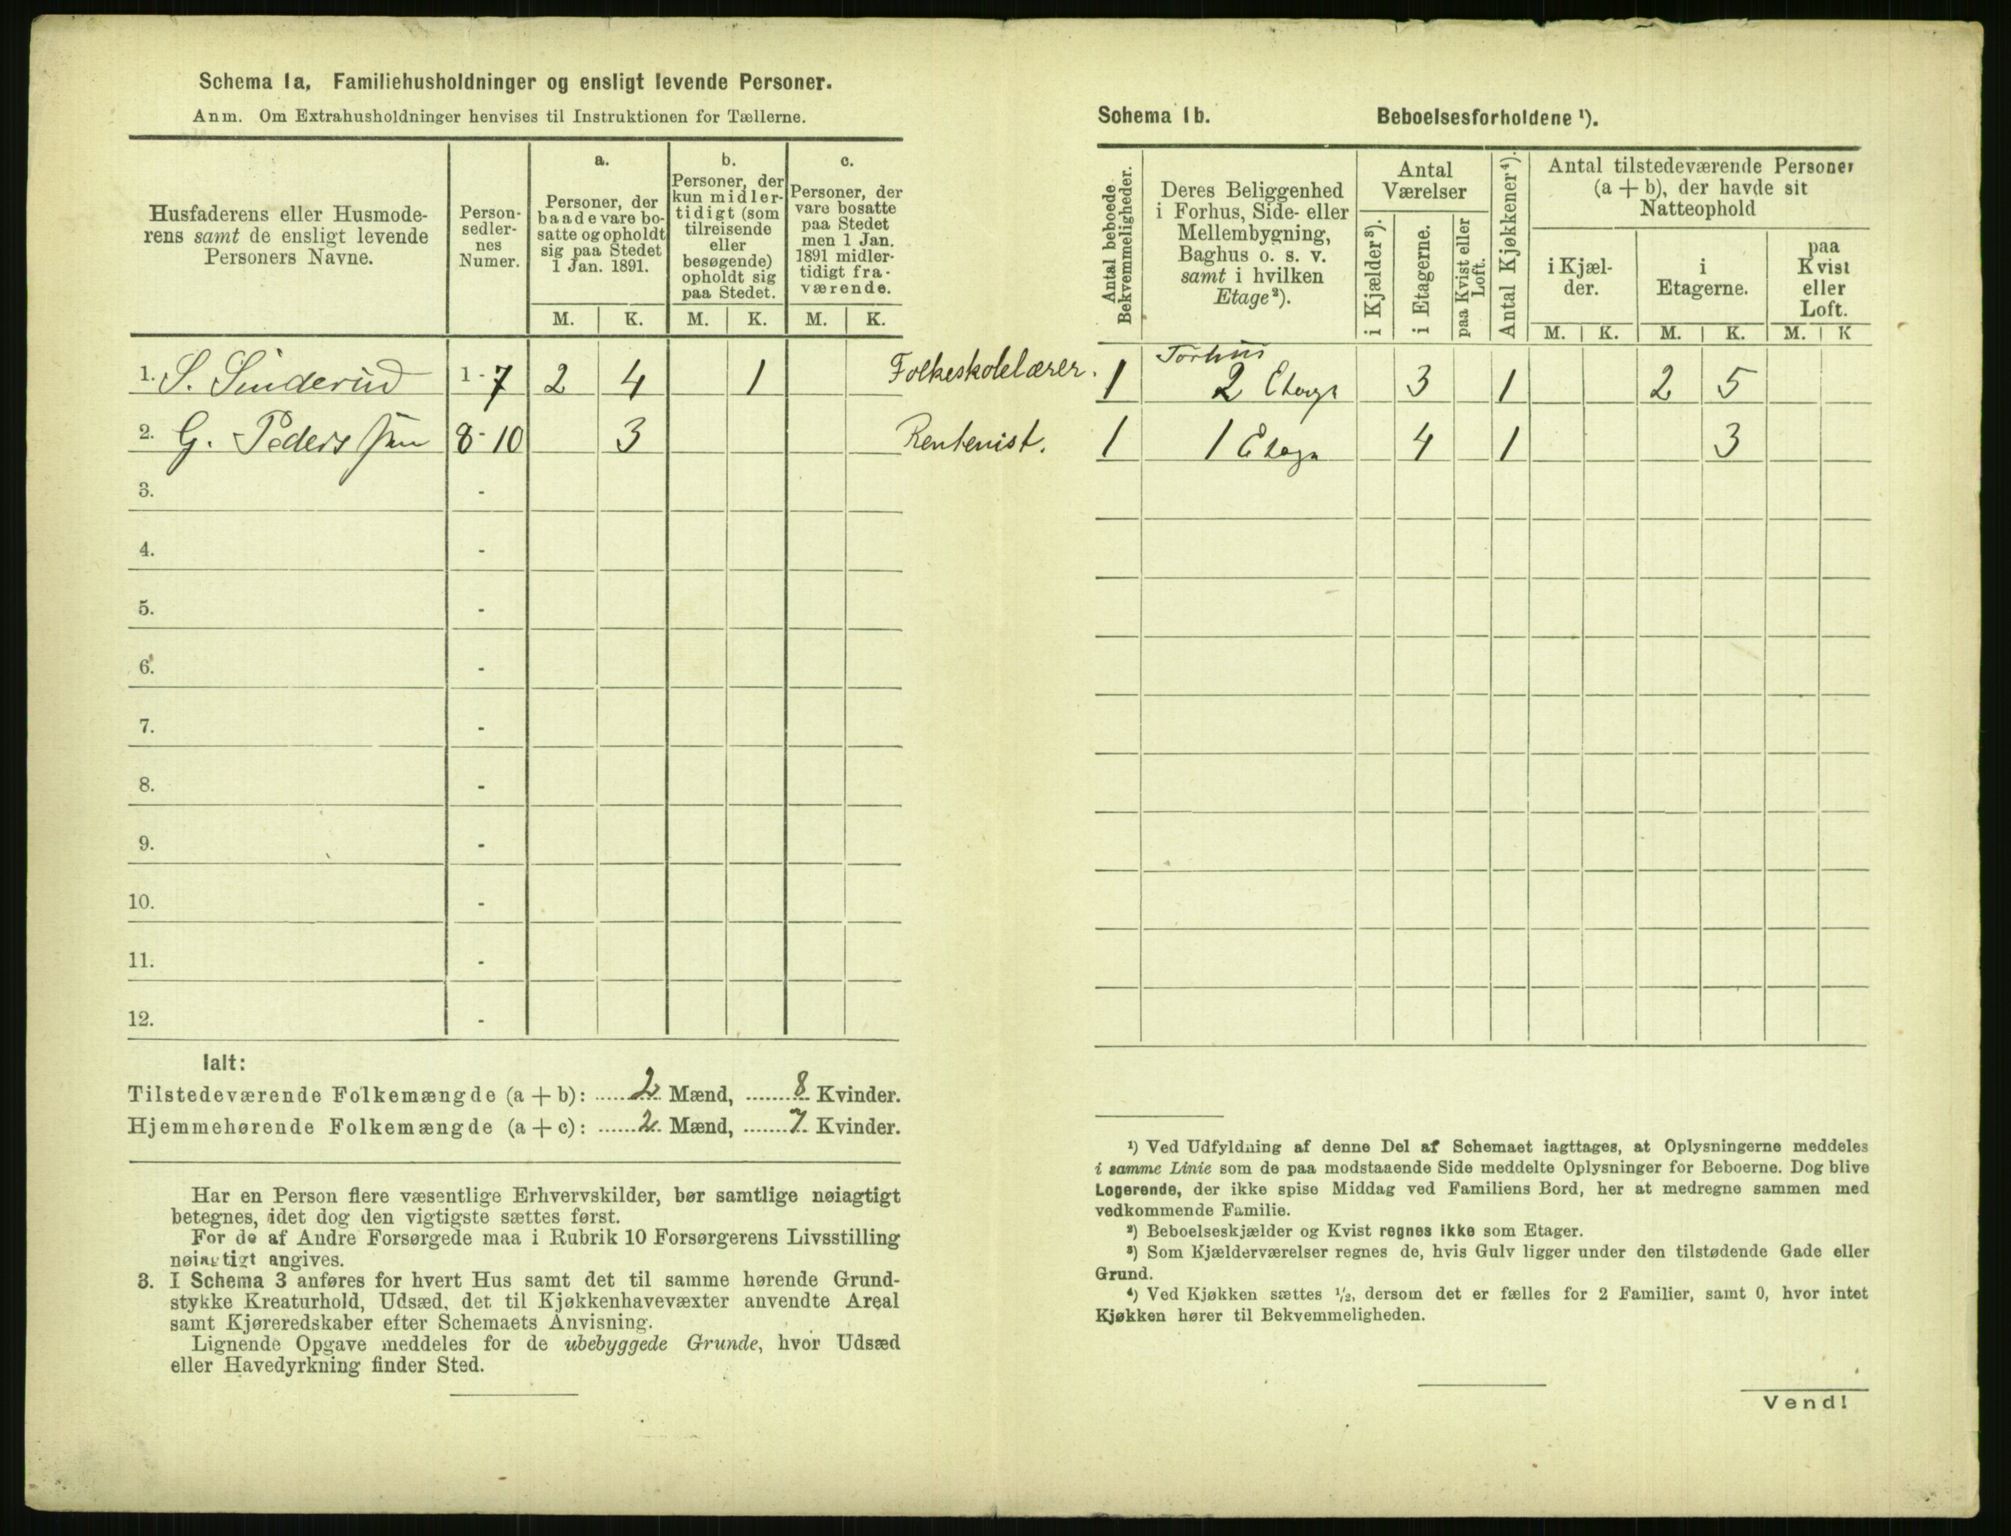 Schema 1a, Familiehusholdninger og ensligt levende Personer.
Anm. Om Extrahusholdninger henvises til Instruktionen for Tællerne.
Husfaderens eller Husmode-
rens samt de ensligt levende
Personers Navne.
Person-
sedler-
nes
Numer.
a.
Personer, der
baade vare bo-
satte og opholdt
sig paa Stedet
1 Jan. 1891.
b.
Personer, der
kun midler-
tidigt (som
tilreisende
eller
besøgende)
opholdt sig
paa Stedet.
c.
Personer, der
vare bosatte
paa Stedet
men 1 Jan.
1891 midler-
tidigt fra-
værende.
M. K. M. K. M. K.
1. S. Sinderud 1-7 2 4 1 Folkeskolelærer.
2. G. Pederssen 8-10 3 Rentenist.
3. -
4. -
5. -
6. -
7. -
8. -
9. -
10. -
11. -
12. -
Ialt:
Tilstedeværende Folkemængde (a + b): 2 Mænd, 8 Kvinder.
Hjemmehørende Folkemængde (a + c): 2 Mænd, 7 Kvinder.
Har en Person flere væsentlige Erhvervskilder, bør samtlige nøiagtigt
betegnes, idet dog den vigtigste sættes først.
For de af Andre Forsørgede maa i Rubrik 10 Forsørgerens Livsstilling
nøiagtigt angives.
3. I Schema 3 anføres for hvert Hus samt det til samme hørende Grund-
stykke Kreaturhold, Udsæd, det til Kjøkkenhavevæxter anvendte Areal
samt Kjøreredskaber efter Schemaets Anvisning.
Lignende Opgave meddeles for de ubebyggede Grunde, hvor Udsæd
eller Havedyrkning finder Sted.
Schema 1b. Beboelsesforholdene ¹).
Antal beboede
Bekvemmeligheder.
Deres Beliggenhed
i Forhus, Side- eller
Mellembygning,
Baghus o. s. v.
samt i hvilken
Etage²).
Antal
Værelser
i Kjælder³).
i Etagerne.
paa Kvist eller
Loft.
Antal Kjøkkener⁴).
Antal tilstedeværende Personer
(a + b), der havde sit
Natteophold
i Kjæl-
der.
i
Etagerne.
paa
Kvist
eller
Loft.
M. K. M. K. M. K
Forhus
1 2 Etage 3 1 2 5
1 1 Etage 4 1 3
¹) Ved Udfyldning af denne Del af Schemaet iagttages, at Oplysningerne meddeles
i samme Linie som de paa modstaaende Side meddelte Oplysninger for Beboerne. Dog blive
Logerende, der ikke spise Middag ved Familiens Bord, her at medregne sammen med
vedkommende Familie.
²) Beboelseskjælder og Kvist regnes ikke som Etager.
³) Som Kjælderværelser regnes de, hvis Gulv ligger under den tilstødende Gade eller
Grund.
⁴) Ved Kjøkken sættes ½, dersom det er fælles for 2 Familier, samt 0, hvor intet
Kjøkken hører til Bekvemmeligheden.
Vend!